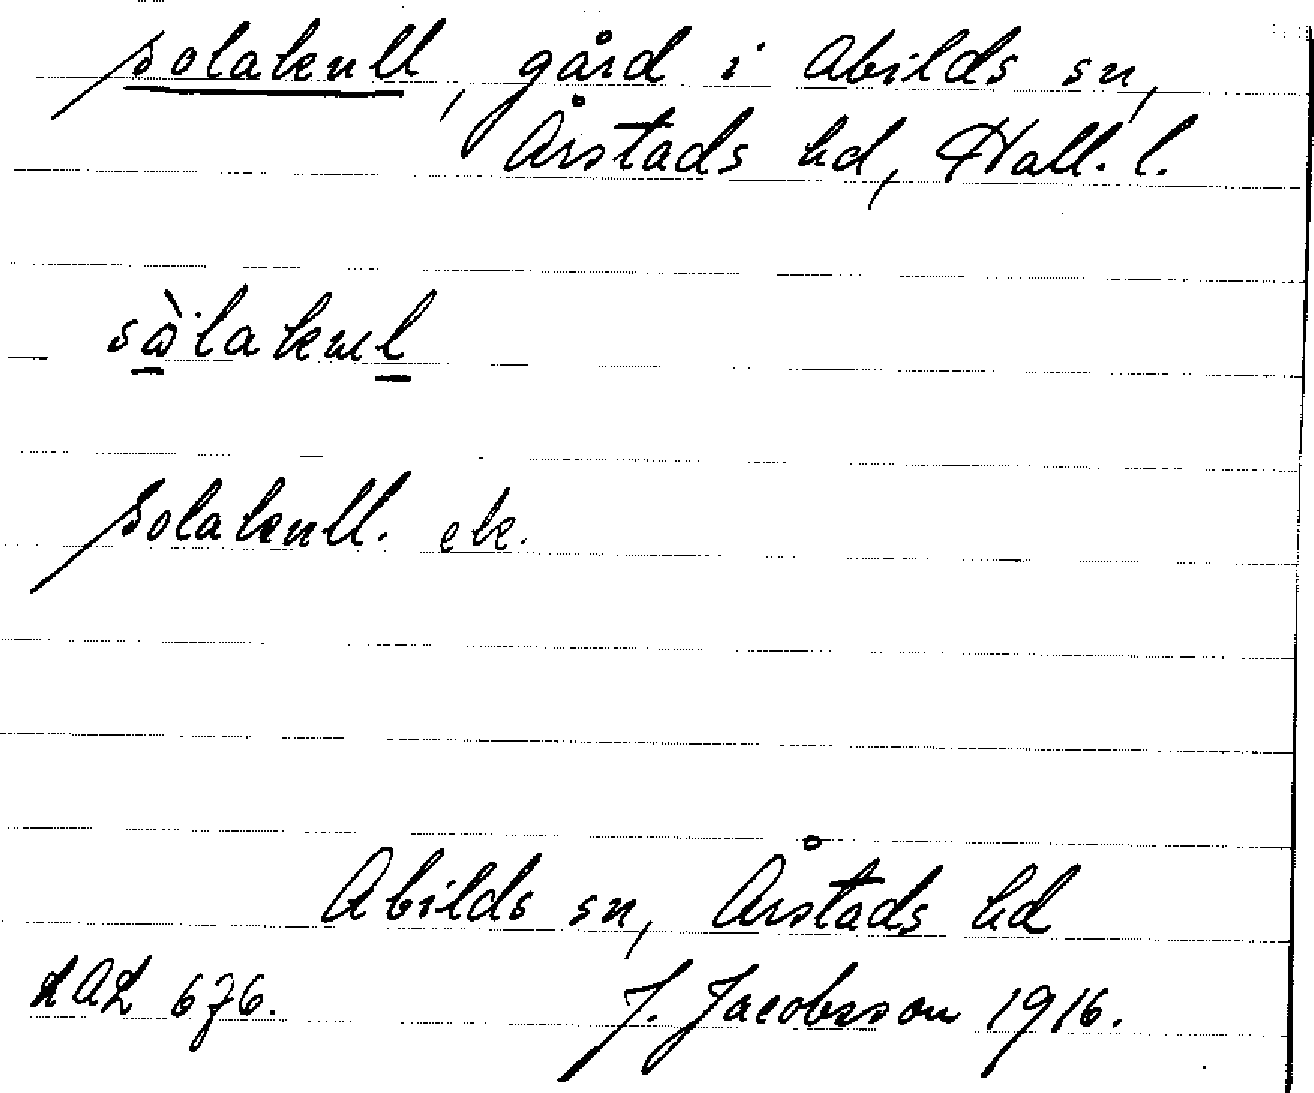 Solakull, gård i Abilds sn,
Årstads hd, Hall. l.
Solakull. ek.
Abilds sn, Årstads hd
LAL 676. J. Jacobsson 1916.